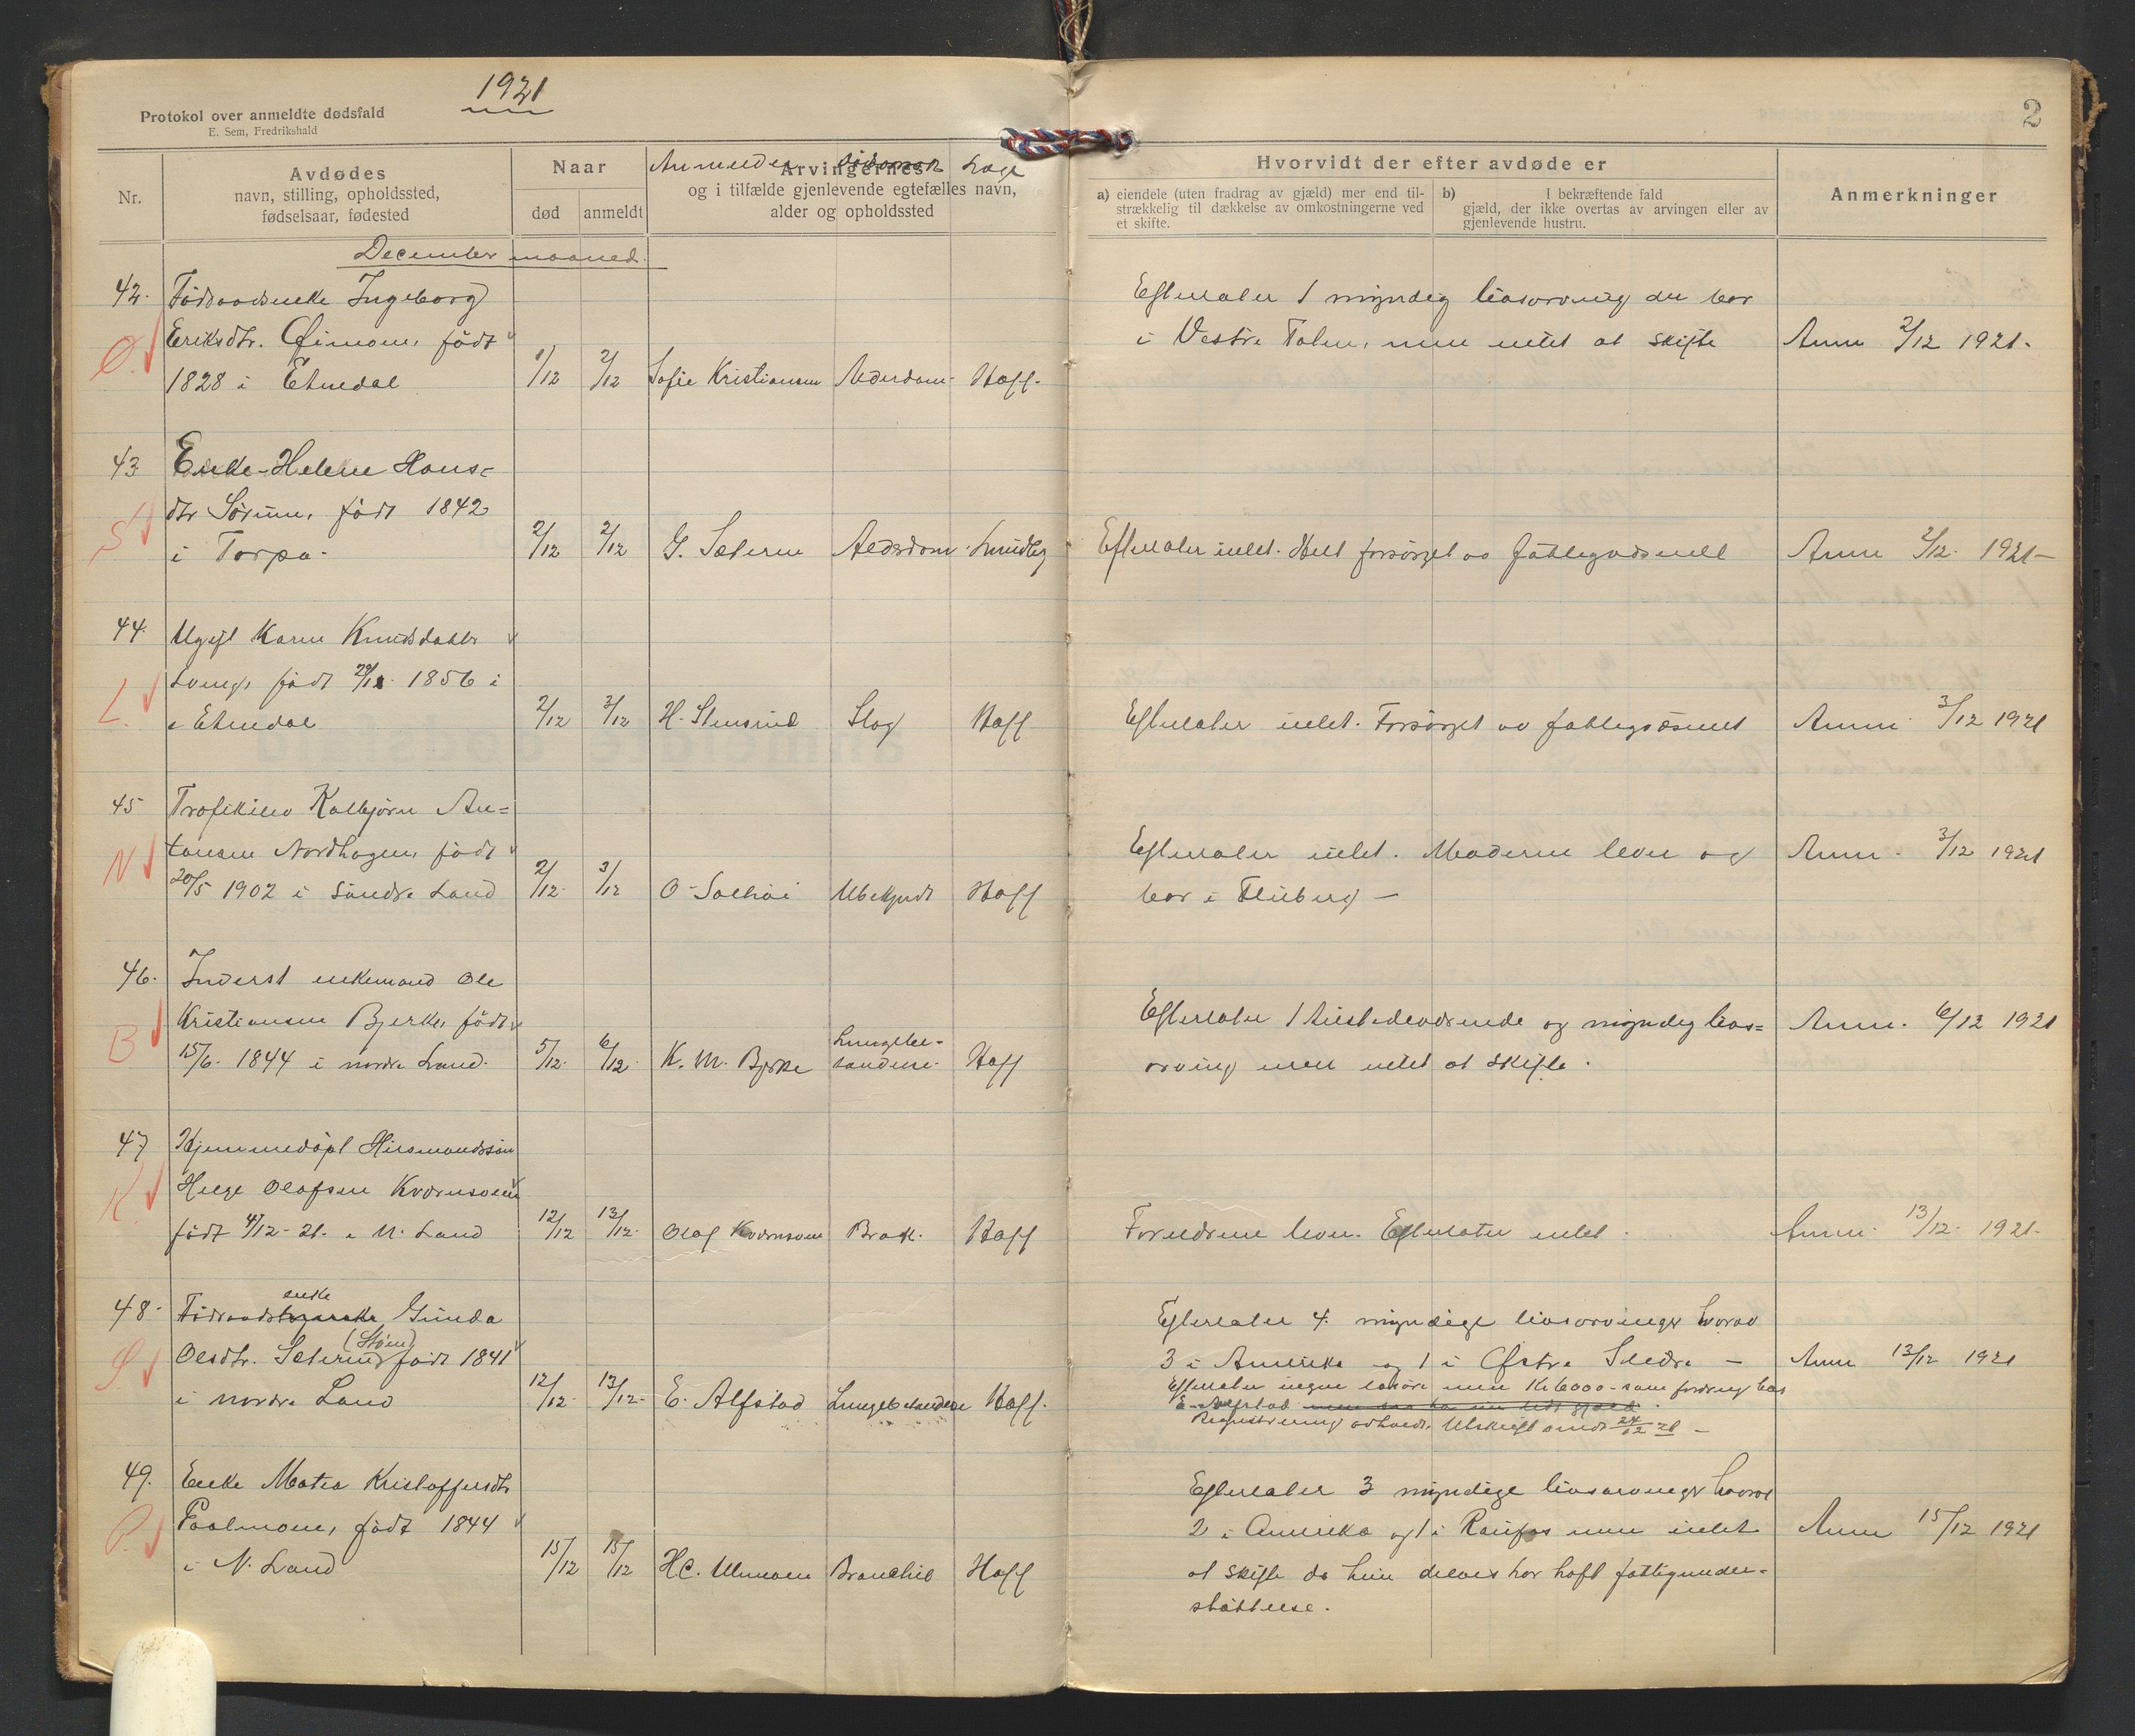 1921
Protokol over anmeldte dødsfald
E. Sem, Fredrikshald
2
Nr.
Avdødes
navn, stilling, opholdssted,
fødselsaar, fødested
Naar
død
anmeldt
Anmelder
Sogn
Arvingernes
og i tilfælde gjenlevende egtefælles navn,
alder og opholdssted
Hvorvidt der efter avdøde er
a) eiendele (uten fradrag av gjæld) mer end til-
strækkelig til dækkelse av omkostningerne ved
et skifte.
b) I bekræftende fald
gjæld, der ikke overtas av arvingen eller av
gjenlevende hustru.
Anmerkninger
December maaned.
42. Födraadsenke Ingeborg
Eriksdtr. Öimoen, födt
1828 i Etnedal
1/12 2/12 Sofie Kristiansen Alderdom Haff.
Efterlater 1 myndig livsarving der bor
i Vestre Toten, men intet at skifte
Anm 2/12 1921.
Ö
43 Enke Helene Hans=
dtr Sörum, födt 1842
i Torpa.
2/12 2/12 G. Sæteren Aldsdom. Lundby
Efterlater intet. Helt forsörget av fattigvdsenet
Anm 2/12. 1921
S
44. Ugift Karen Knudsdatter
födt 29/12. 1856 i
i Etnedal
2/12 3/12 H. Stensrud Slag Haff
Efterlater intet. Forsörget av fattigvæsenet
Anm. 3/12 1921
L.
45 Trafikelev Kolbjörn An=
tonsen Nordhagen, födt
20/5 1902 i Söndre Land
2/12. 3/12 O. Solhöi Ubekjendt Haff
Efterlater intet. Moderen lever og
bor i Fluberg
Anm. 3/12 1921
N
46. Inderst enkemand Ole
Kristiansen Bjerke, födt
15/6. 1844 i nordre Land.
5/12. 6/12. K. M. Bjerke Lungebe-
tændelse. Haff
Efterlater 1 tilstedeværende og myndig livs=
arving men intet at skifte.
Anm. 6/12 1921
B
47 Hjemmedöpt Husmandssön
Helge Olafsen Kvernsveen
födt 4/12-21. i N. Land
12/12 13/12. Olaf Kvernsveen Brok. Haff
Forældrene lever. Efterlater intet.
Anm. 13/12. 1921.
K
48. Födraadsenke Gunda
Olsdtr. Sæterlund (Stöen) födt 1841
i nordre Land
12/12. 13/12. E. Alfstad Lungebetændelse Haff.
Efterlater 4 myndige livsarvinger hvorav
3 i Amerika og 1 i Östre Slidre
Efterlater ingen lösöre men Kr 6000 som fordring hos
E. Alfstad
Registrering avholdt. Utskrift sendt 24/12 21
Anm 13/12 1921
S.
49. Enke Matea Kristoffersdtr
Paalmoen, födt 1844
i N. Land
15/12 15/12 HC. Ulmoen Bronchit Haff
Efterlater 3 myndige livsarvinger hvorav
2 i Amerika og 1 i Raufos men intet
at skifte da hun delvis har haft fattigunder-
stöttelse.
Anm 15/12 1921
P.